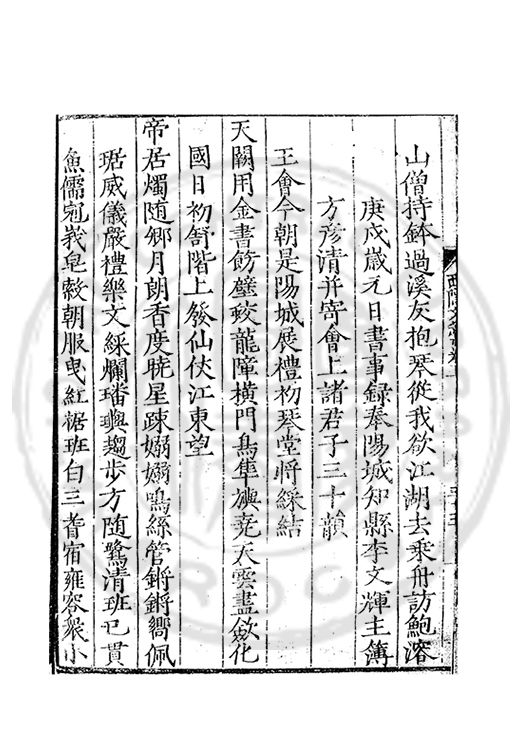 山僧持鉢過溪友抱琴從我欲江湖去乘舟訪鮑溶
庚戌歲元日書事録奉陽城知縣李文輝主簿
方彥清并寄會上諸君子三十韻
王會今朝是陽城展禮初琴堂將綵結
天闕用金書飭壁蛟龍障橫門鳥隼旟堯天雲盡斂化
國日初舒階上發仙伏江東望
帝居燭随鄉月朗香度曉星踈嫋嫋鳴絲管鏘鏘嚮佩
琚威儀嚴禮樂文綵爛璠璵趨步方随鷺清班已貫
魚儒冠峩皂縠朝服曳紅裾班白三耆宿雍容衆小